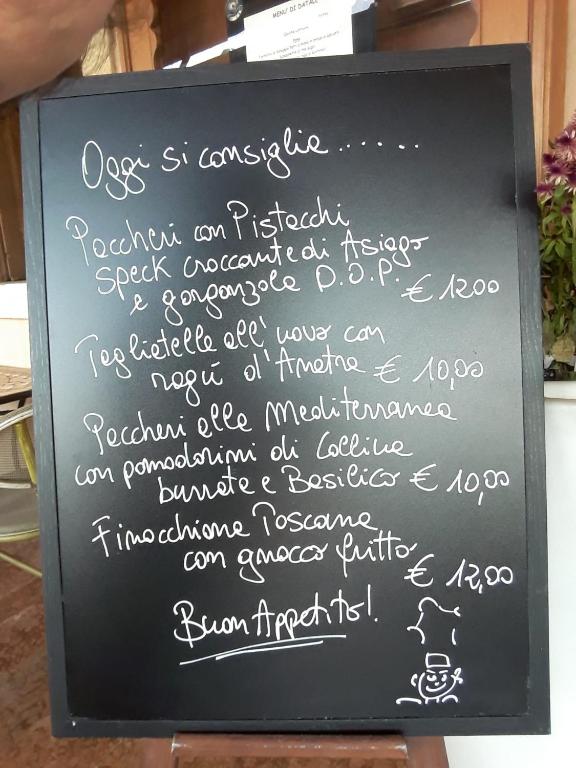 MENU' DI NATALE
Oggi si consiglia......
Paccheri con Pistacchi
speck croccante di Asiago
e gorgonzola D.O.P. € 12.00
Tagliatelle all'uovo con
ragù d'Anatra € 10,00
Paccheri alla Mediterranea
con pomodorini di Collina
burrata e Basilico € 10,00
Finocchiona Toscana
con gnocco fritto
€ 12,00
Buon Appetito!